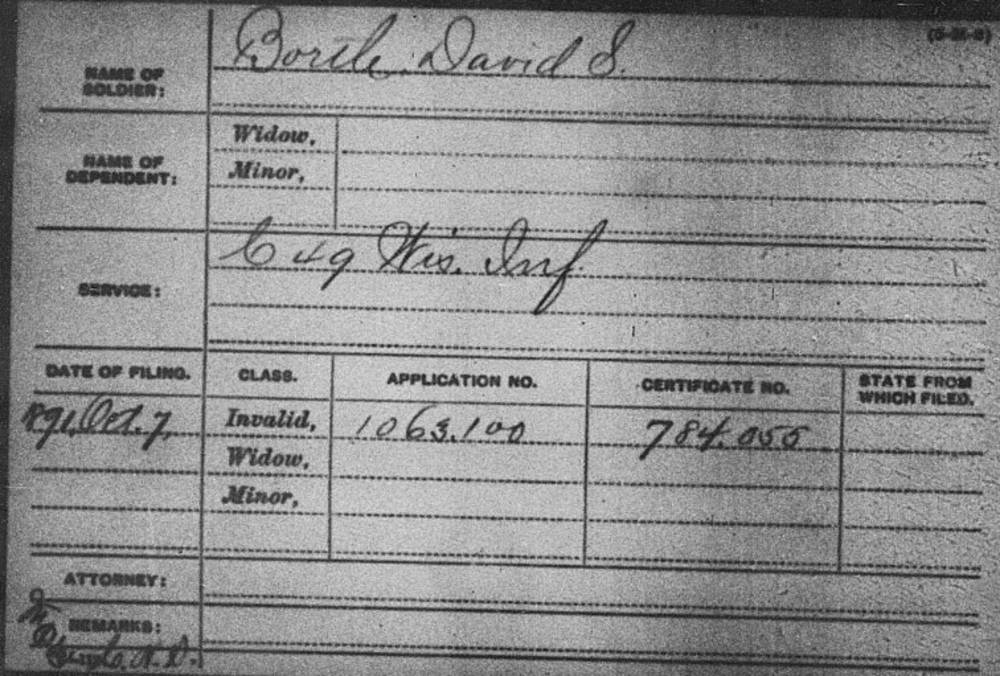 (3-M-6)
Bortle. David S.
NAME OF
SOLDIER:
NAME OF
DEPENDENT:
Widow,
Minor,
C 49 Wis. Inf.
SERVICE:
DATE OF FILING.
CLASS.
APPLICATION NO.
CERTIFICATE NO.
STATE FROM
WHICH FILED.
891, Oct. 7,
Invalid,
1063.100
784.055
Widow,
Minor,
ATTORNEY:
REMARKS:
N. D.